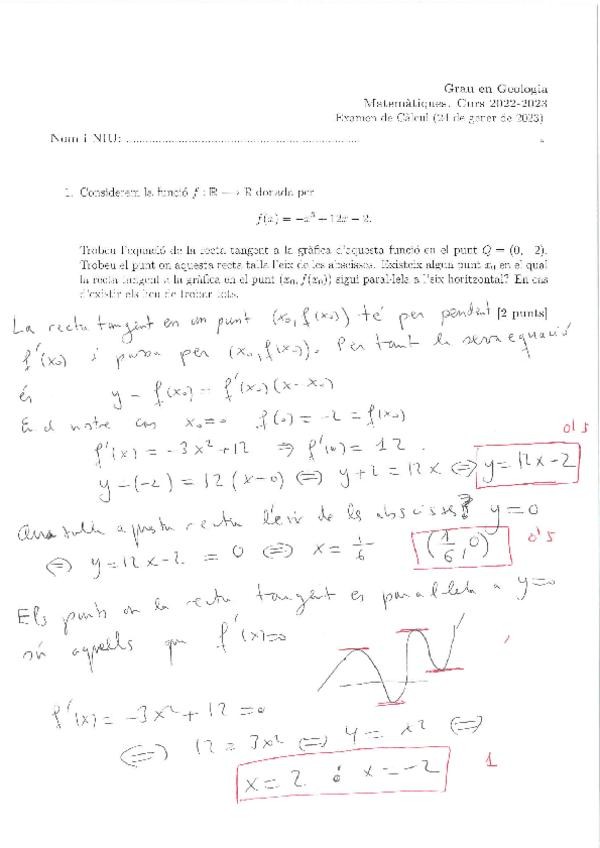 Grau en Geologia
Matemàtiques. Curs 2022-2023
Examen de Càlcul (24 de gener de 2023)
Nom i NIU: ................................................................
1. Considerem la funció f : ℝ ⟶ ℝ donada per
f(x) = −x³ + 12x − 2.
Trobeu l'equació de la recta tangent a la gràfica d'aquesta funció en el punt Q = (0, −2).
Trobeu el punt on aquesta recta talla l'eix de les abscisses. Existeix algun punt x₀ en el qual
la recta tangent a la gràfica en el punt (x₀, f(x₀)) sigui paral·lela a l'eix horitzontal? En cas
d'existir els heu de trobar tots.
[2 punts]
La recta tangent en un punt (x₀, f(x₀)) té per pendent
f'(x₀) i passa per (x₀, f(x₀)). Per tant la seva equació
és y − f(x₀) = f'(x₀)(x − x₀)
En el nostre cas x₀=0 f(0) = −2 = f(x₀)
0'5
f'(x) = −3x² + 12 ⇒ f'(0) = 12.
y−(−2) = 12(x−0) ⇔ y+2 = 12x ⇔ y = 12x − 2
On talla aquesta recta l'eix de les abscisses? y = 0
⇔ y = 12x − 2 = 0 ⇔ x = 1/6 (1/6, 0) 0'5
Els punts on la recta tangent es paral·lela a y=0
són aquells que f'(x)=0
f'(x) = −3x² + 12 = 0
⇔ 12 = 3x² ⇔ 4 = x² ⇔
x = 2 ó x = −2 1